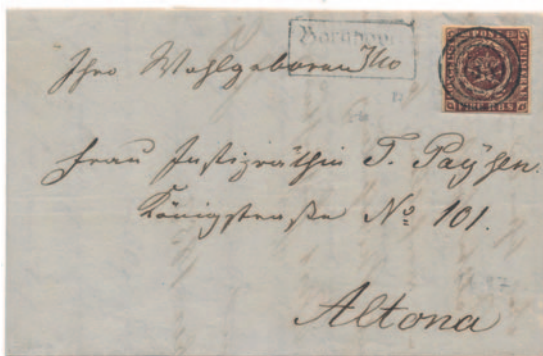 Bornhöved
7/10
Ihro Wohlgeboren
Frau Justizräthin T. Paysen.
Königstraße No 101.
Altona